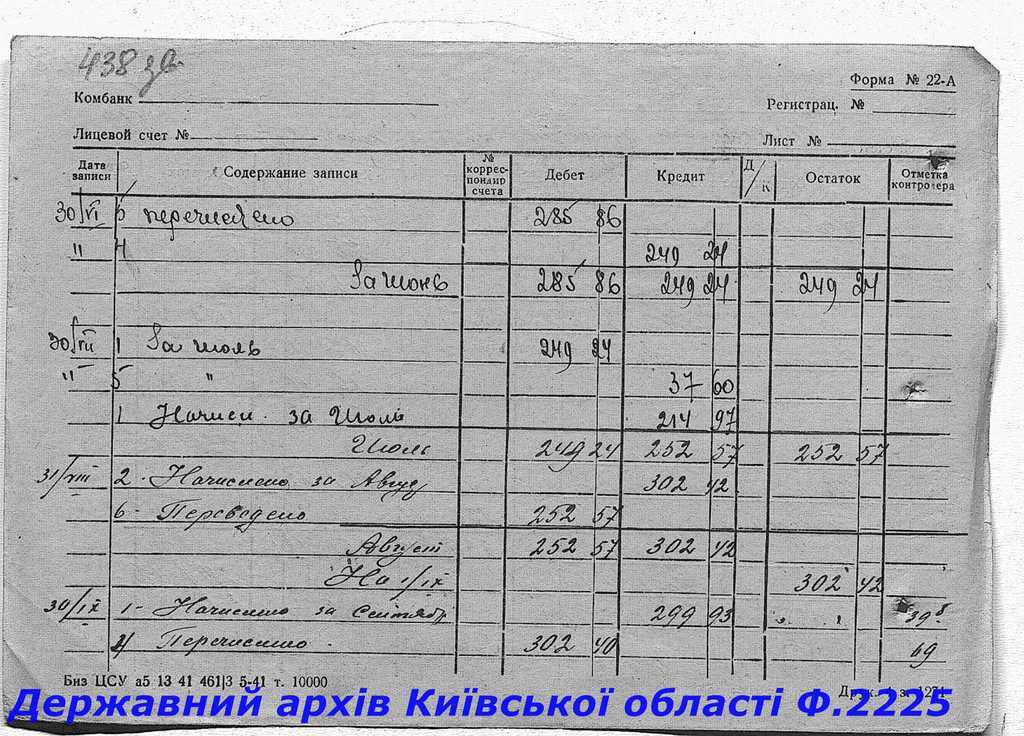 438 зв
Форма № 22-А
Комбанк
Регистрац. №
Лицевой счет №
Лист №
Дата записи Содержание записи № коррес-пондир счета Дебет Кредит Д/К Остаток Отметка контролера
30/VI 5 перечислено 285 86
" 4 249 24
За июнь 285 86 249 24 249 24
30/VII 1 За июль 249 24
" 5 " 37 60
1 Начисл. за Июль 214 97
Июль 249 24 252 57 252 57
31/VIII 2 - Начислено за Август 302 42
6 - Переведено 252 57
Август 252 57 302 42
На 1/IX 302 42
30/IX 1 - Начислено за Сентябр 299 93 398
4 Перечислено 302 40 69
Биз ЦСУ а5 13 41 461|3 5-41 т. 10000
Друк. 1 з. 1271
Державний архів Київської області Ф.2225